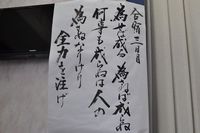 合宿三日目
為せば成る 為さねば成らぬ
何事も成らぬは人の
為さぬなりけり
全力を注げ